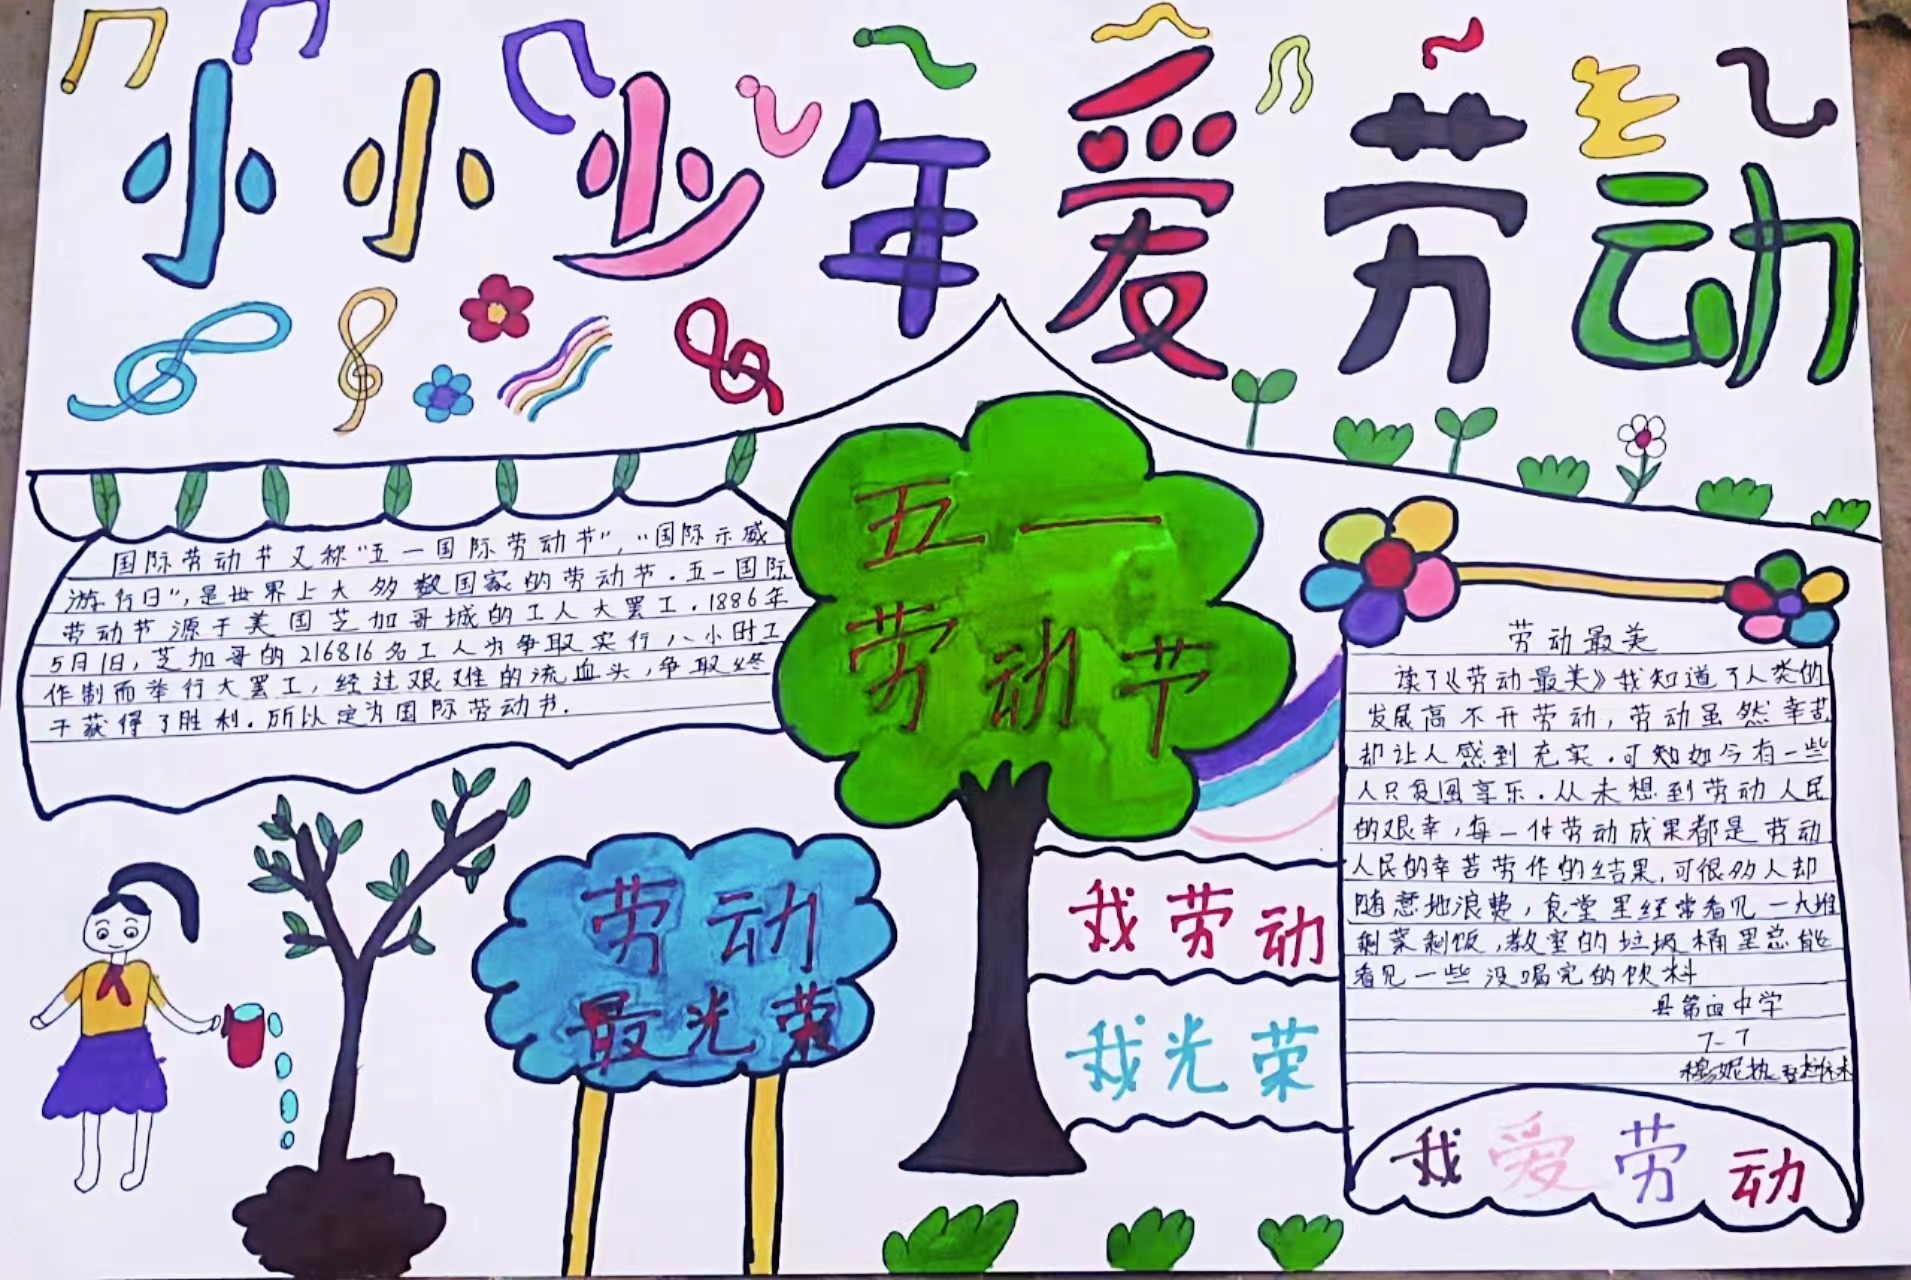 小小少年爱劳动
五一
劳动节
国际劳动节又称“五一国际劳动节”,“国际示威
游行日”,是世界上大多数国家的劳动节.五一国际
劳动节源于美国芝加哥城的工人大罢工.1886年
5月1日,芝加哥的216816名工人为争取实行八小时工
作制而举行大罢工,经过艰难的流血头,争取终
于获得了胜利.所以定为国际劳动书.
劳动
最光荣
我劳动
我光荣
劳动最美
读了《劳动最美》我知道了人类的
发展高不开劳动,劳动虽然幸苦
却让人感到充实.可知如今有一些
人只贪图享乐.从未想到劳动人民
的艰幸,每一件劳动成果都是劳动
人民的幸苦劳作的结果,可很多人却
随意地浪费,食堂里经常看见一大堆
剩菜剩饭,教室的垃圾桶里总能
看见一些没喝完的饮料
县第四中学
7-7
穆妮热
我爱劳动